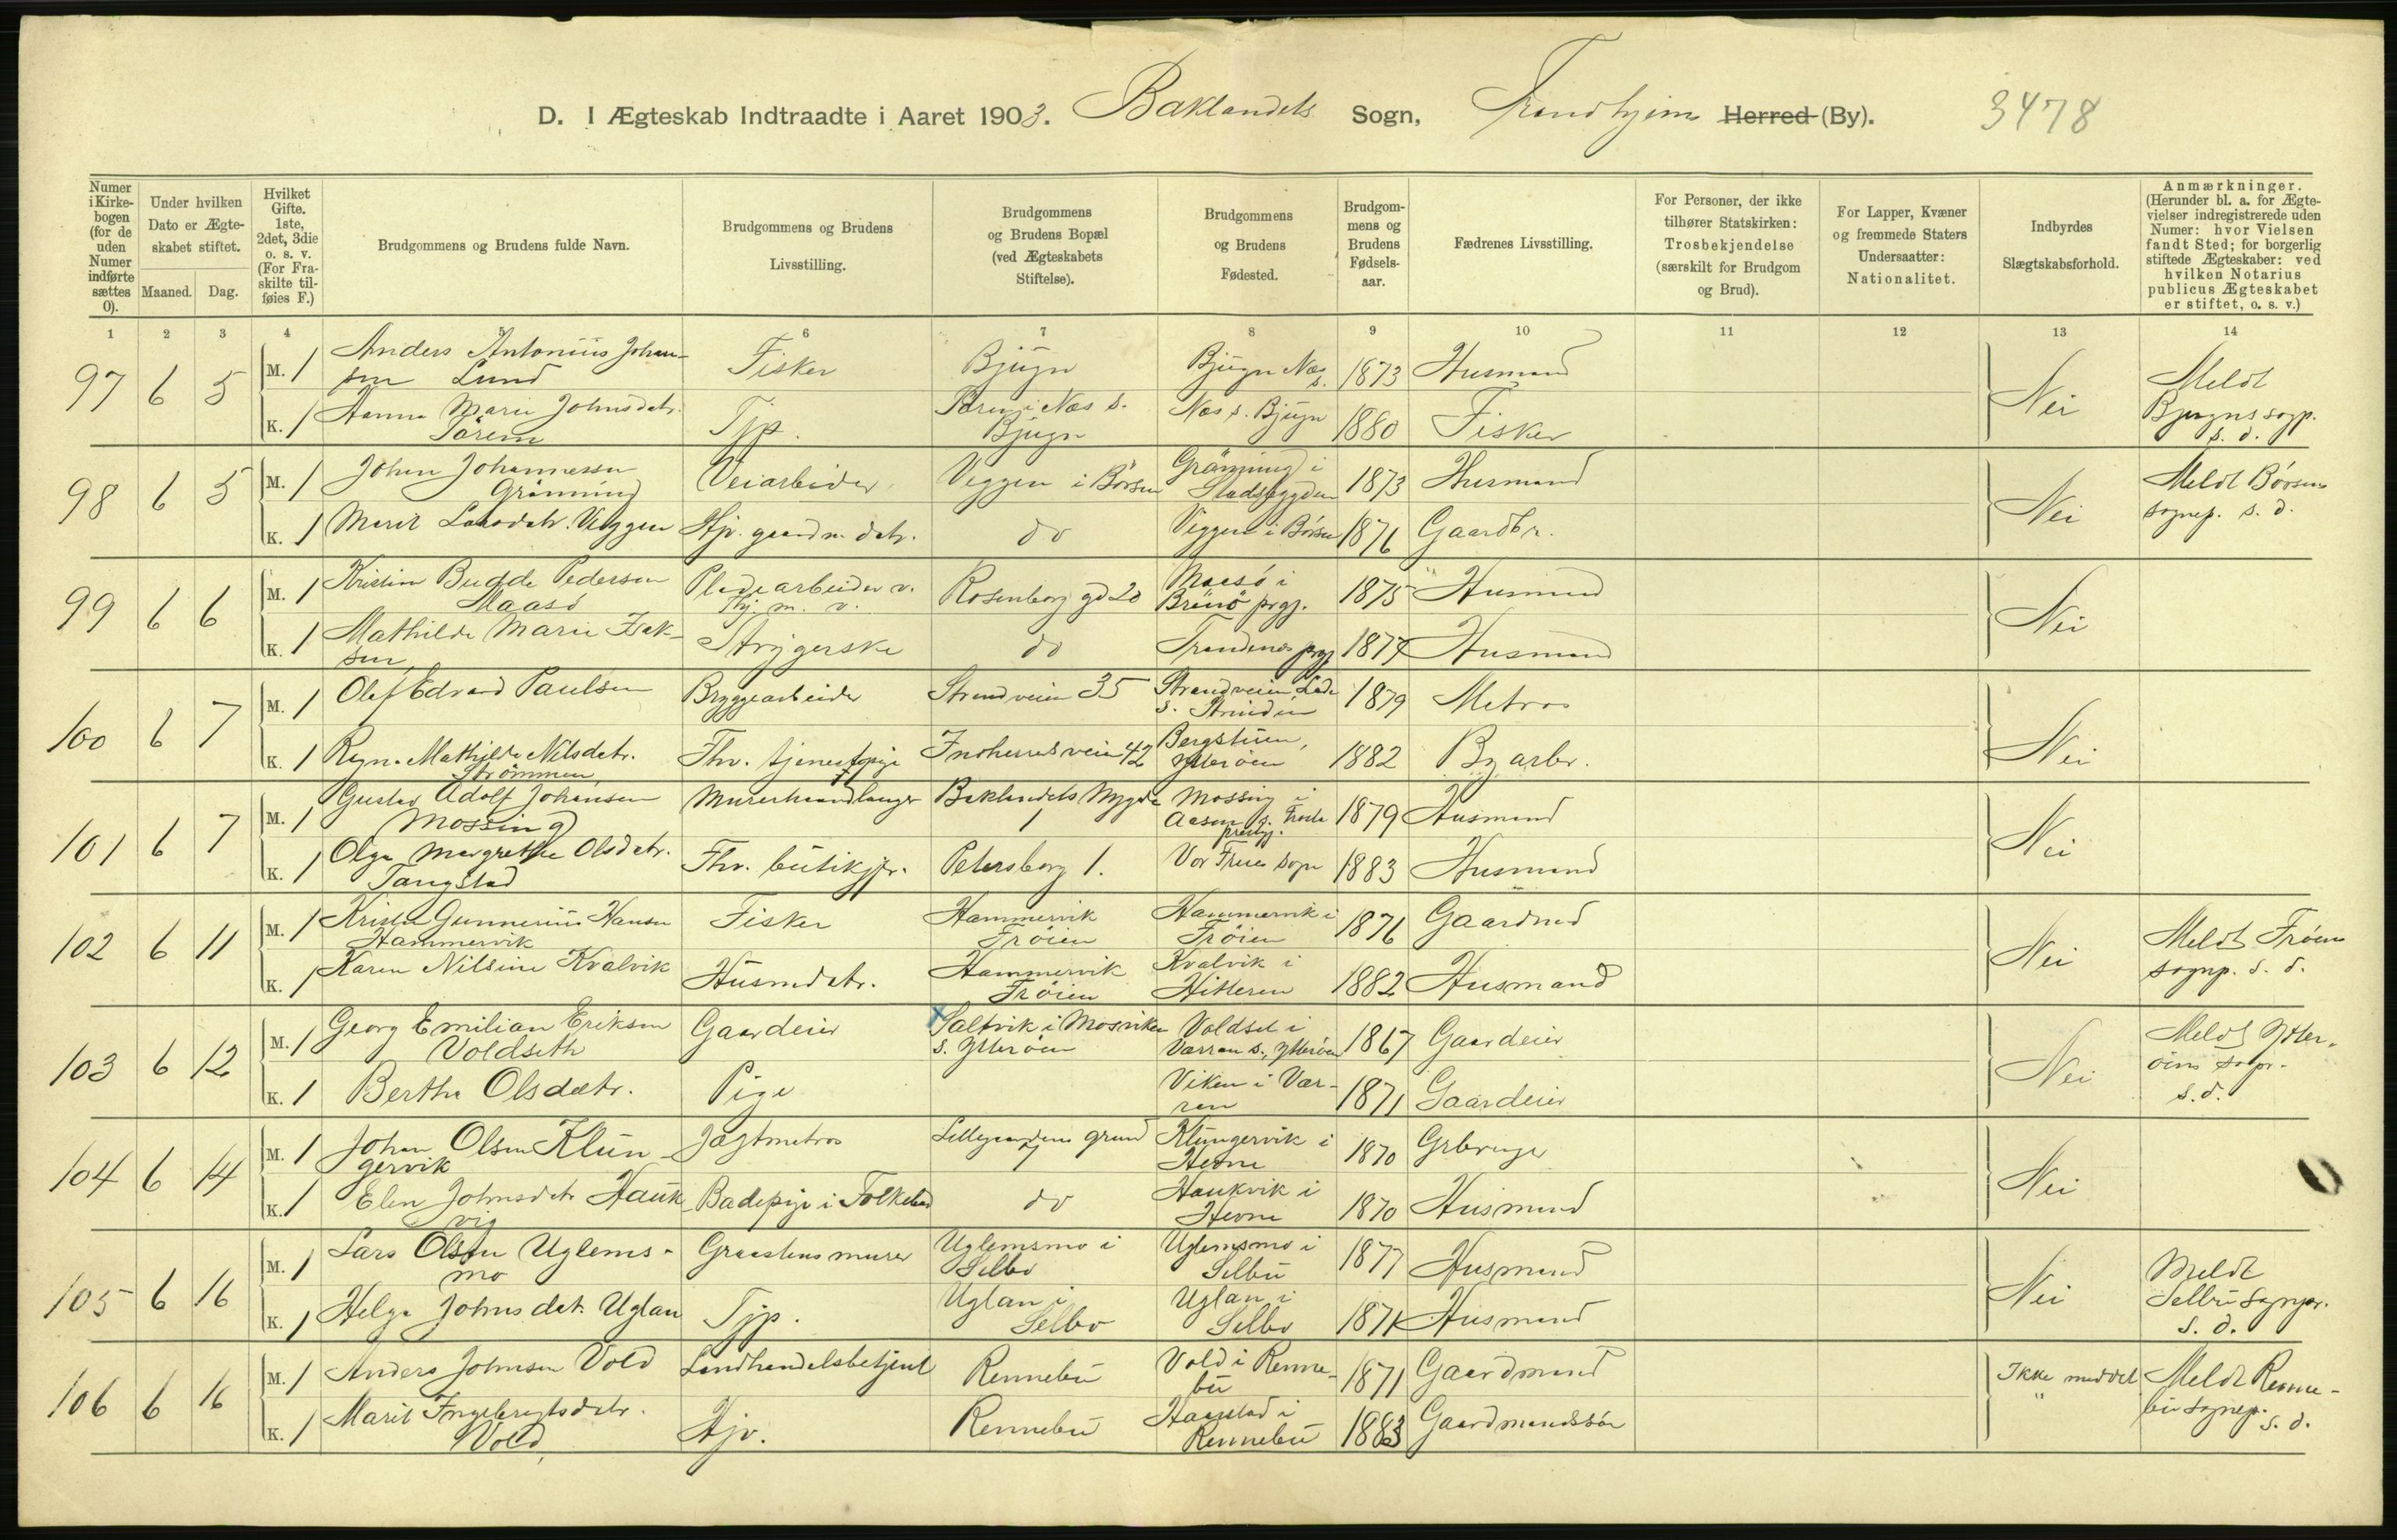 D. I Ægteskab Indtraadte i Aaret 1903. Baklandets Sogn, Trondhjem Herred (By). 3478
Numer i Kirkebogen (for de uden Numer indførte sættes 0).
Under hvilken Dato er Ægteskabet stiftet.
Maaned. Dag.
Hvilket Gifte. 1ste, 2det, 3die o. s. v. (For Fraskilte tilføies F.)
Brudgommens og Brudens fulde Navn.
Brudgommens og Brudens Livsstilling.
Brudgommens og Brudens Bopæl (ved Ægteskabets Stiftelse).
Brudgommens og Brudens Fødested.
Brudgommens og Brudens Fødselsaar.
Fædrenes Livsstilling.
For Personer, der ikke tilhører Statskirken: Trosbekjendelse (særskilt for Brudgom og Brud).
For Lapper, Kvæner og fremmede Staters Undersaatter: Nationalitet.
Indbyrdes Slægtskabsforhold.
Anmærkninger. (Herunder bl. a. for Ægtevielser indregistrerede uden Numer: hvor Vielsen fandt Sted; for borgerlig stiftede Ægteskaber: ved hvilken Notarius publicus Ægteskabet er stiftet, o. s. v.)
1 2 3 4 5 6 7 8 9 10 11 12 13 14
97 6 5 M. 1 Anders Antonius Johansen Lund Fisker Bjugn Bjugn Næs s. 1873 Husmand Nei Meldt Bjugns sogp. s. d.
K. 1 Hanna Marie Johnsdatr. Tårem Tjp. i Næs s. Bjugn Næs s. Bjugn 1880 Fisker
98 6 5 M. 1 Johan Johannessen Grønning Veiarbeider Viggen i Børsen Grønning i Stadsbygden 1873 Husmand Nei Meldt Børsens sognep. s. d.
K. 1 Marit Larsdatr. Viggen Hjv. gaardm. datr. do Viggen i Børsen 1876 Gaardbr.
99 6 6 M. 1 Kristian Budde Pedersen Maasø Pladearbeider v. Thj. m. v. Rosenborg gd 20 Maasø i Brønø prgj. 1875 Husmand Nei
K. 1 Mathilde Marie Isaksen Strygerske do Trondenes prgj 1874 Husmand
100 6 7 M. 1 Olaf Edvard Paulsen Bryggearbeider Strandveien 35 Strandveien Lade s. Strinden 1879 Matros Nei
K. 1 Mathilde Nilsdatr. Strømmen Fhv. tjenestepige Indherredsveien 42 Bergstuen, Ytterøen 1882 Byarbr.
101 6 7 M. 1 Gustav Adolf Johansen Mossing Murerhaandlanger Baklandets Nygade 1 Mossing i Aasen s. Frosta prestgj. 1879 Husmand Nei
K. 1 Olga Margrethe Olsdatr. Tangstad Fhv. butikjfr. Petersborg 1. Vor Frues sogn 1883 Husmand
102 6 11 M. 1 Gunnerius Hansen Hammervik Fisker Hammervik Frøien Hammervik i Frøien 1876 Gaardmd Nei Meldt Frøiens sognp. s. d.
K. 1 Karen Nilsine Kvalvik Husmdatr. Hammervik Frøien Kvalvik i Hitteren 1882 Husmand
103 6 12 M. 1 Georg Emilian Eriksen Voldseth Gaardeier x Saltvik i Mosviken s. Ytterøen Voldset i Værran s., Ytterøen 1867 Gaardeier Nei Meldt Ytterøens sogpr. s. d.
K. 1 Bertha Olsdatr. Pige Viken i Værran 1871 Gaardeier
104 6 14 M. 1 Johan Olsen Klungervik Jagtmatros Lillegaardens grund 7 Klungervik i Hevne 1870 Grbruger Nei
K. 1 Elen Johnsdatr Haukvig Badepige i Folkebad do Haukvik i Hevne 1870 Husmand
105 6 16 M. 1 Lars Olsen Uglemsmo Graastensmurer Uglemsmo i Selbo Uglemsmo i Selbu 1877 Husmand Nei Meldt Selbu sognpr. s. d.
K. 1 Helga Johnsdatr. Uglan Tjp. Uglan i Selbo Uglan i Selbo 1871 Husmand
106 6 16 M. 1 Anders Johnsen Vold Landhandelsbetjent Rennebu Vold i Rennebu 1871 Gaardmand Ikke meddelt Meldt Rennebu sognep. s. d.
K. 1 Marit Ingebrigtsdatr. Vold Hjv. Rennebu Haarstad i Rennebu 1883 Gaardmandssøn "